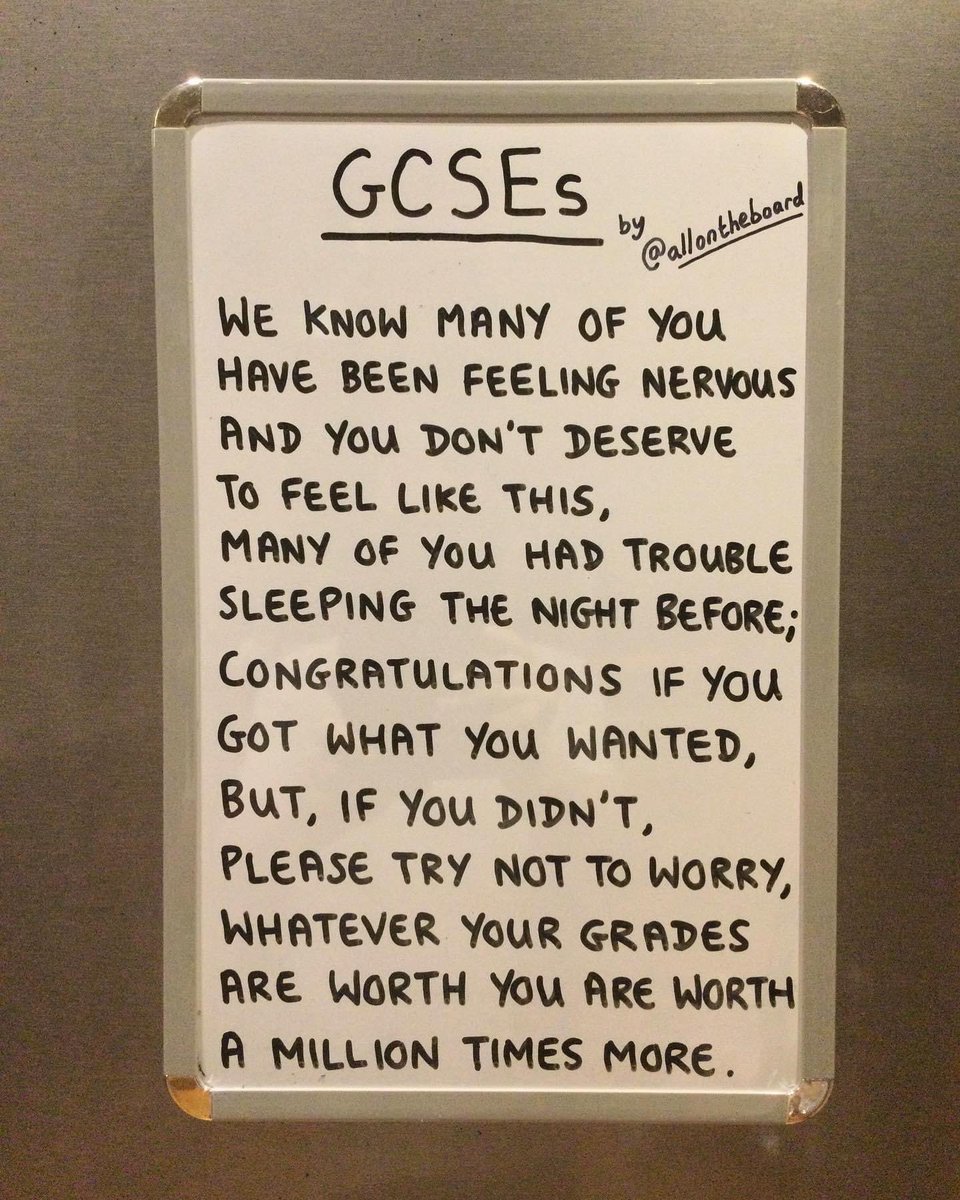 GCSEs
by
@allontheboard
WE KNOW MANY OF YOU
HAVE BEEN FEELING NERVOUS
AND YOU DON'T DESERVE
TO FEEL LIKE THIS,
MANY OF YOU HAD TROUBLE
SLEEPING THE NIGHT BEFORE;
CONGRATULATIONS IF YOU
GOT WHAT YOU WANTED,
BUT, IF YOU DIDN'T,
PLEASE TRY NOT TO WORRY,
WHATEVER YOUR GRADES
ARE WORTH YOU ARE WORTH
A MILLION TIMES MORE.